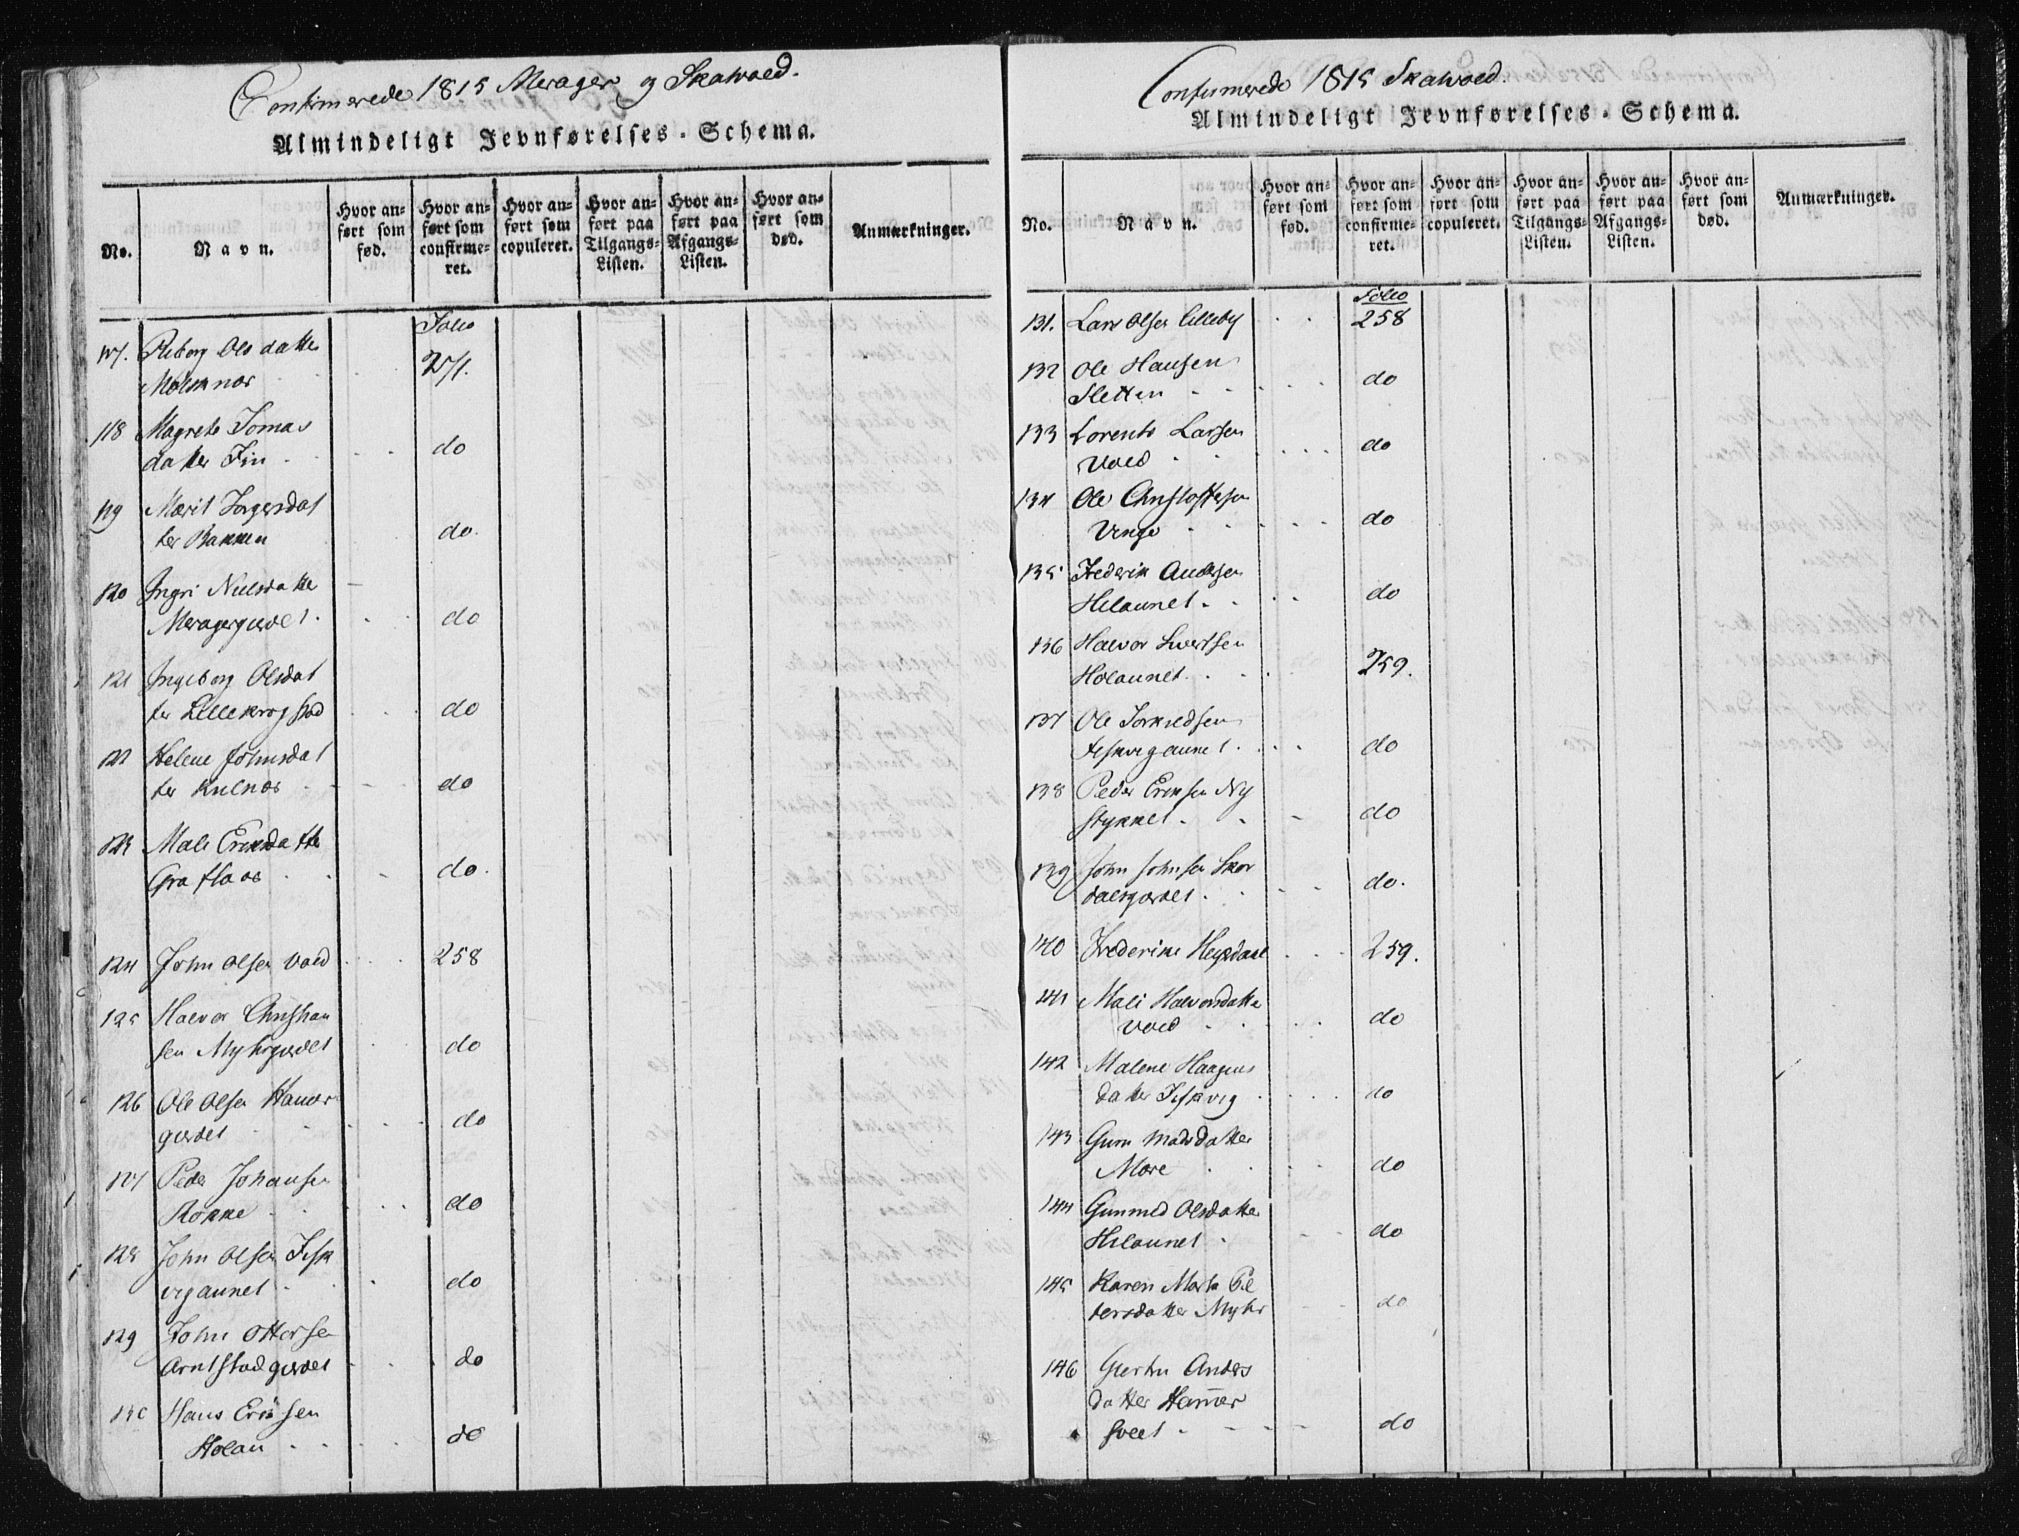 Confirmerede 1815 Merager og Skatvold.
Almindeligt Jevnførelses-Schema.
No.
Navn.
Hvor anført som fød.
Hvor anført som confirmeret.
Hvor anført som copuleret.
Hvor anført paa Tilgangs-Listen.
Hvor anført paa Afgangs-Listen.
Hvor anført som død.
Anmærkninger.
Folio
117. Reborg Olsdatter
257.
118 Magrete Tomas
datter Fin do
119 Marit Torgersdat
ter Bakken do.
120 Ingri Nielsdatte
Meragergiærdet do
121 Ingeborg Olsdat
ter Lillekrogstad do
122 Helene Johnsdat
ter Kulnæs do
123 Mali Eriksdatte
Graflaas do.
124 John Olsen Vold 258
125 Halvor Christian
sen Myhrgiærdet do
126 Ole Olsen Hamer
gærdet do
127 Peder Johansen
Rokke do
128 John Olsen Fisk
vigaunet do
129 John Ottersen
Arntstadgærdet do
130 Hans Eriksen
Holan do
Confirmerede 1815 Skatvold.
Almindeligt Jevnførelses-Schema.
No.
Navn.
Hvor anført som fød.
Hvor anført som confirmeret.
Hvor anført som copuleret.
Hvor anført paa Tilgangs-Listen.
Hvor anført paa Afgangs-Listen.
Hvor anført som død.
Anmærkninger.
Folio
131. Lars Olsen Lilleby 258
132 Ole Hansen
Sletten do
133 Lorents Larsen
Vold do
134 Ole Christoffersen
Vinge do
135 Frederik Andersen
Hilaunet do
136 Halvor Sivertsen
Holaunet 259.
137 Ole Torkildsen
Fiskvigaunet do
138 Peder Eriksen Ny
stykket do
139 John Johnsen Skor
dalsgærdet do.
140 Frederik Hegsdahl 259.
141 Mali Halvorsdatte
Vold do
142 Malene Haagens
datter Fiskvig do
143 Guru Madsdatter
Mære do
144 Gunnild Olsdatter
Hilaunet do
145 Karen Marta Pe
tersdatter Myhr do
146 Giertru Anders
datter Ham̄er
sveet do